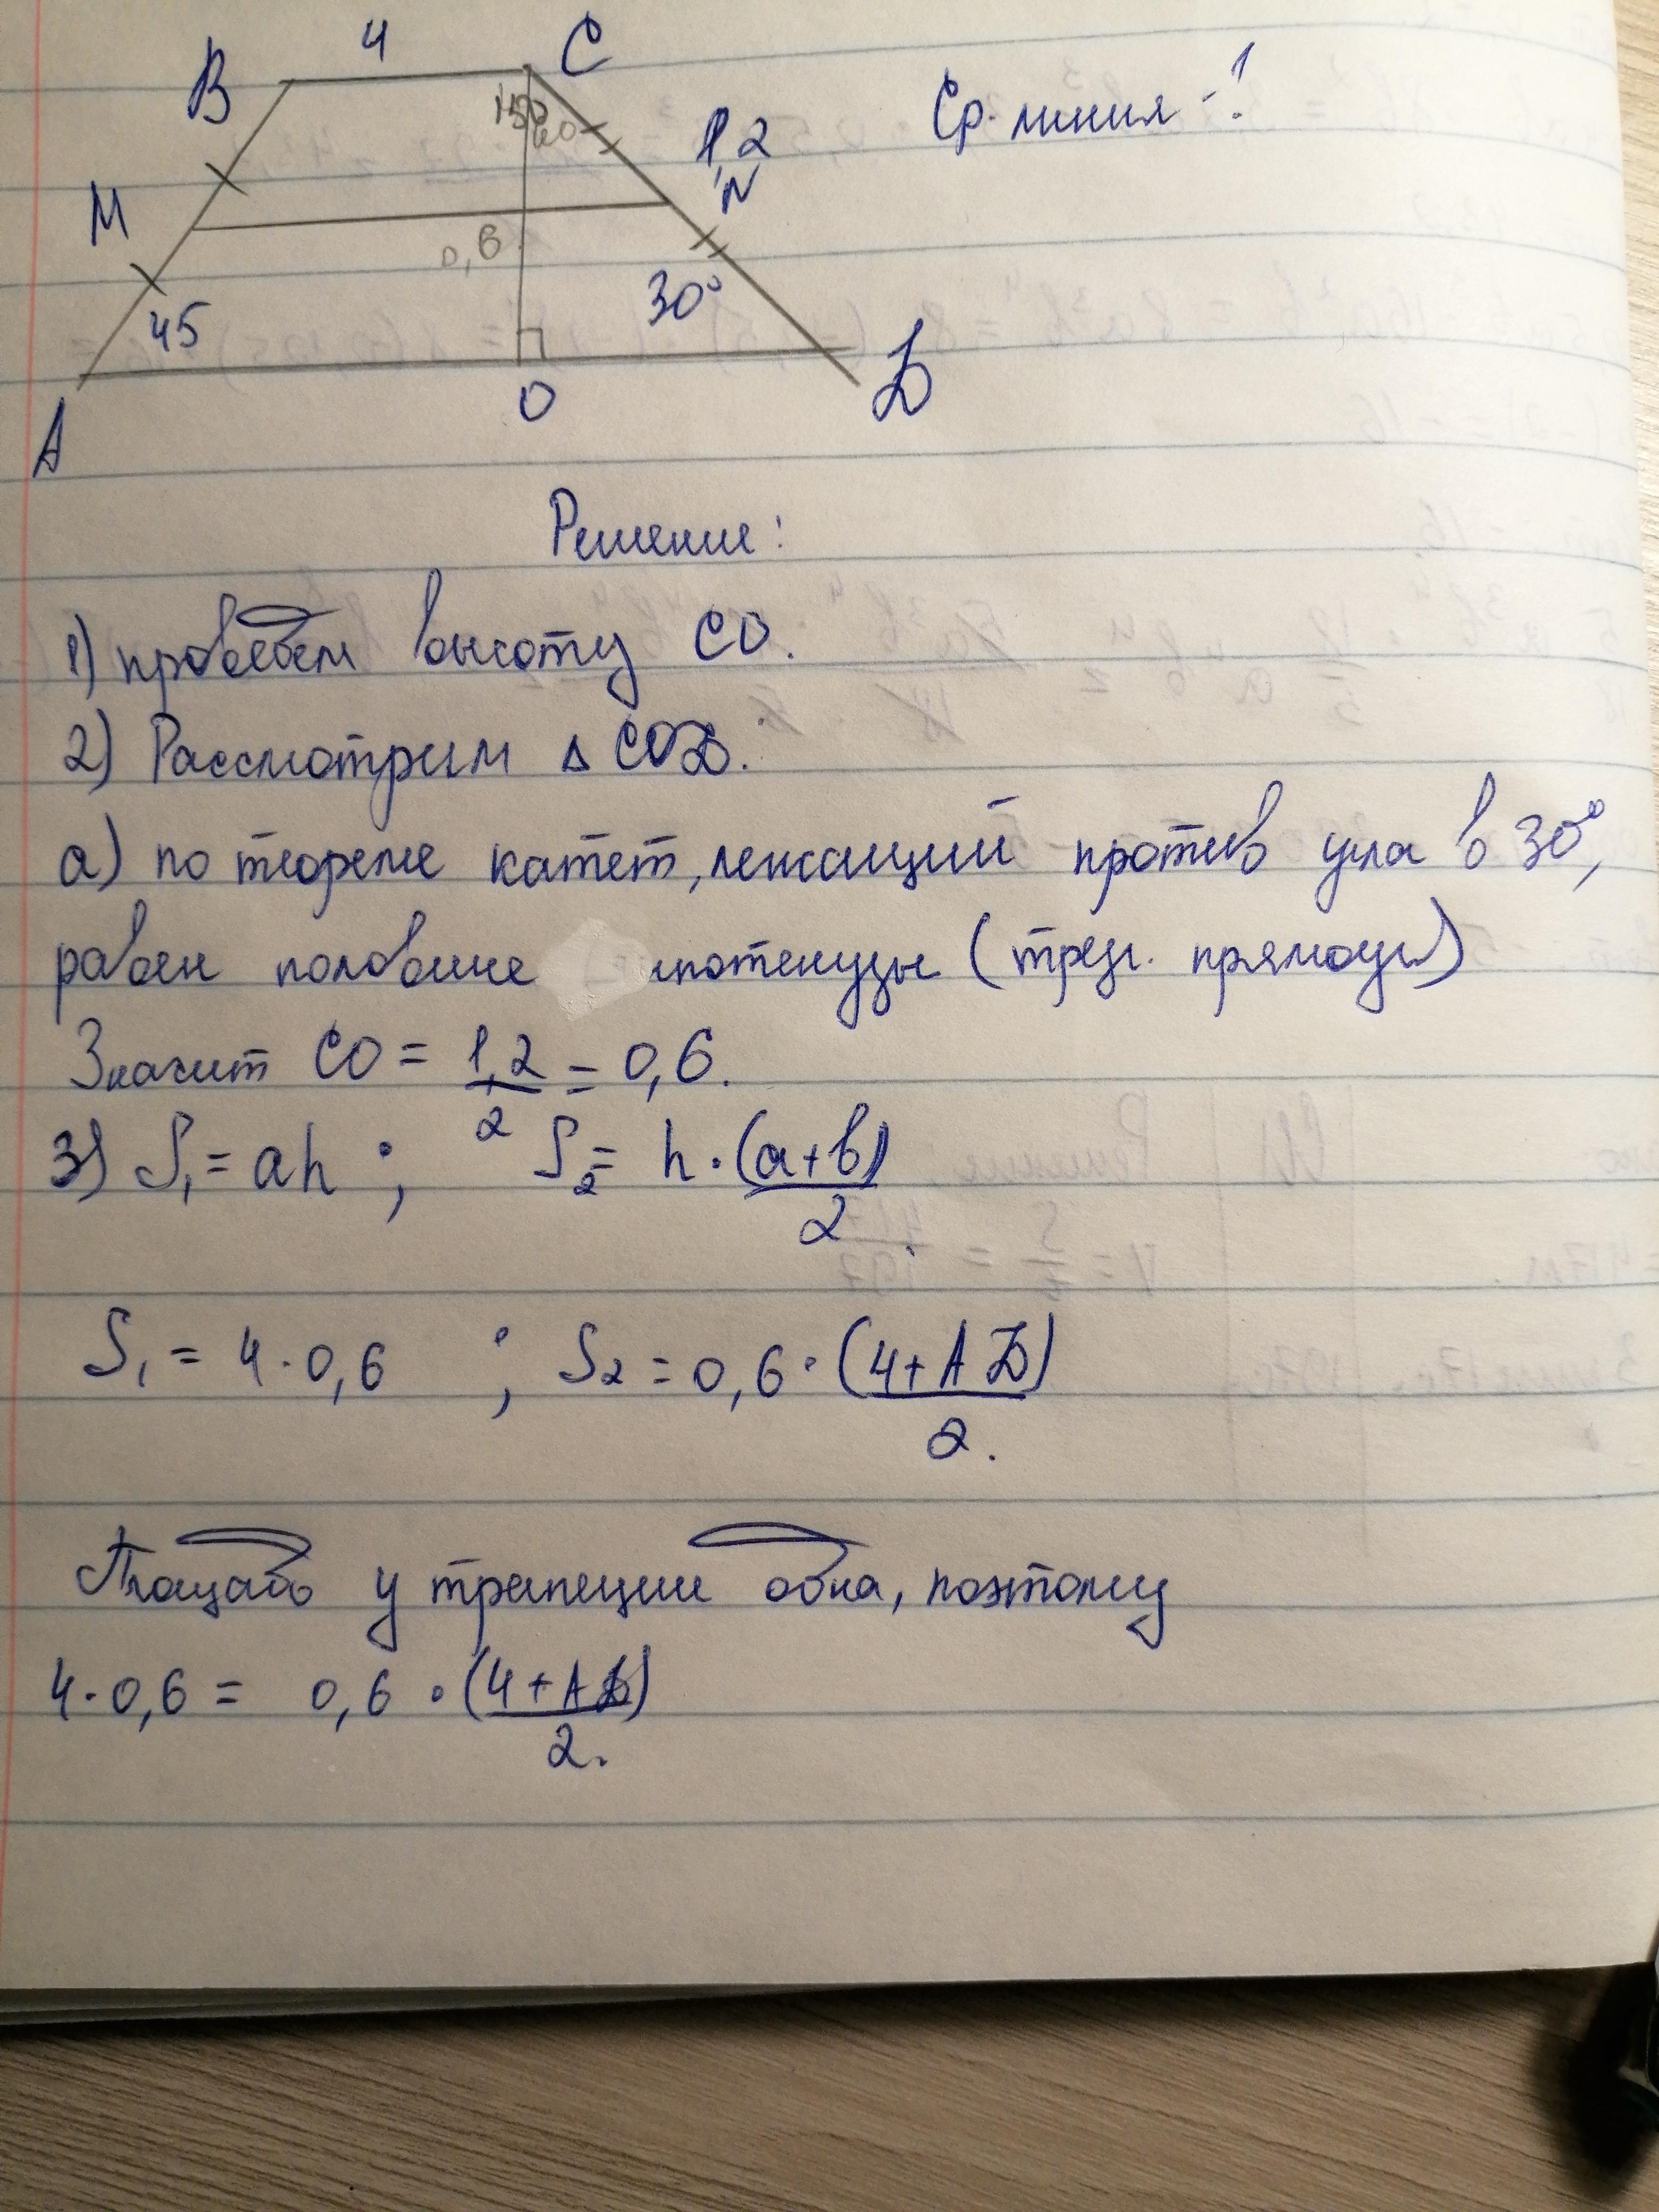 4
B
C
150
60
1,2
Ср. линия - ?
M
N
0,6
45
30°
A
O
D
Решение:
1) проведем высоту CO.
2) Рассмотрим Δ COD.
а) по теореме катет, лежащий против угла в 30°,
равен половине ипотенузы (треуг. прямоуг)
Значит CO = 1,2/2 = 0,6.
3) S₁ = ah ; S₂ = h · (a+b)/2.
S₁ = 4 · 0,6 ; S₂ = 0,6 · (4+AD)/2.
Площадь у трапеции одна, поэтому
4 · 0,6 = 0,6 · (4+AD)/2.